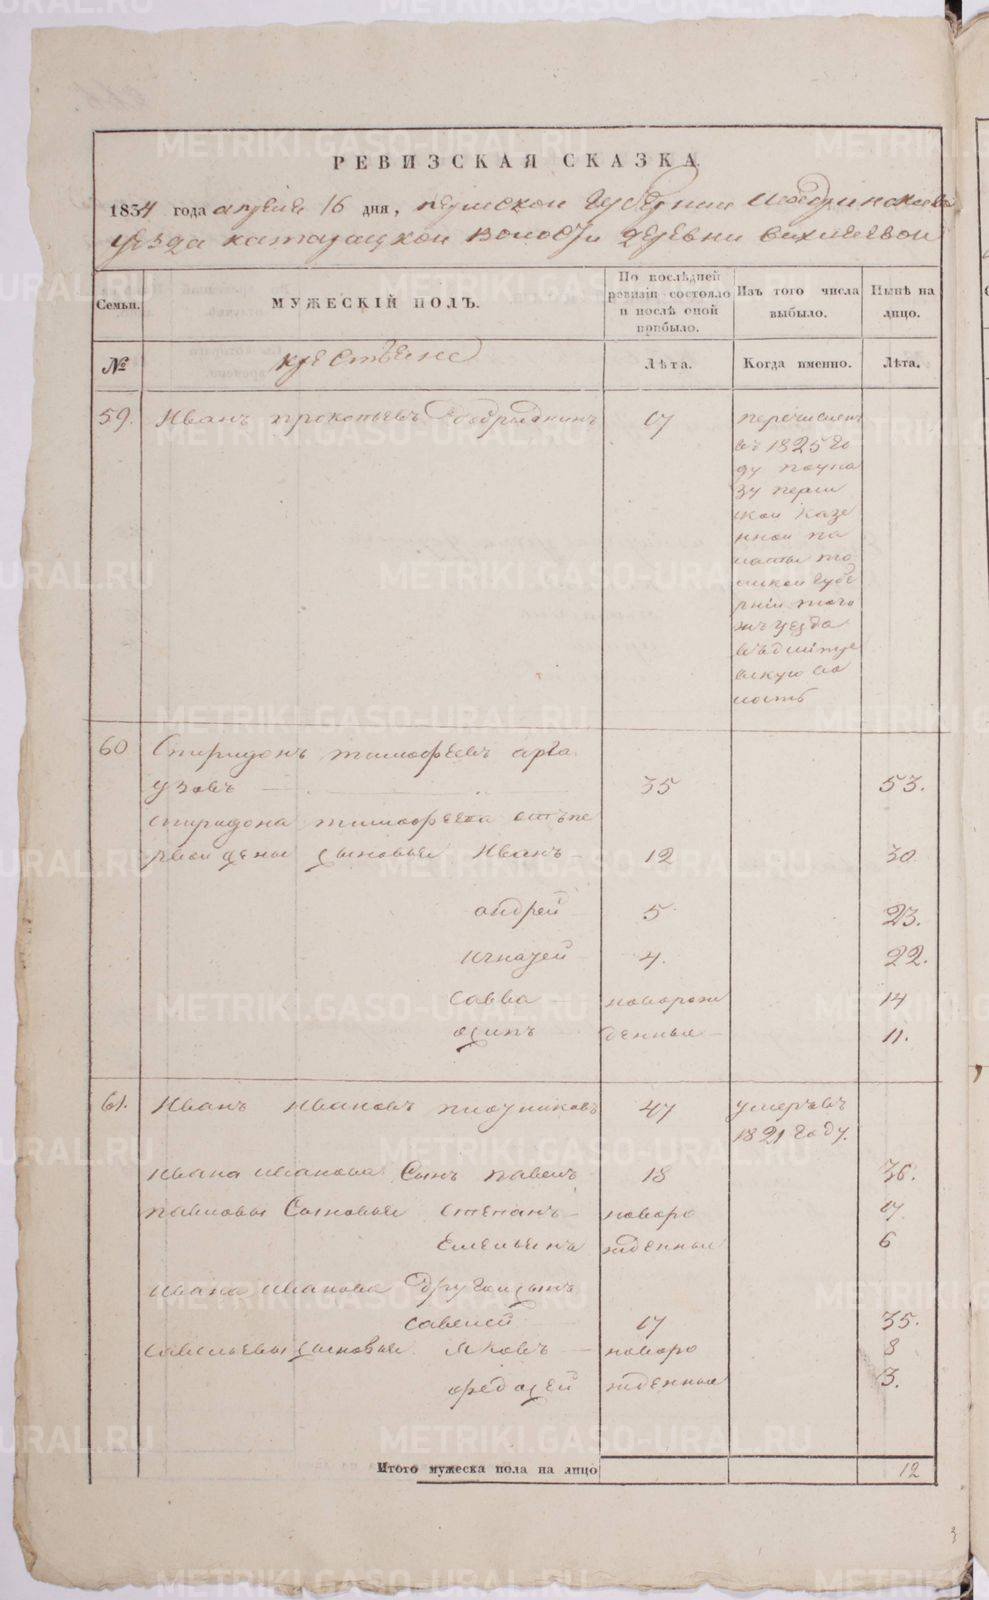 РЕВИЗСКАЯ СКАЗКА
1834 года апреля 16 дня, пермской губернии Шадринскаго
уезда катайской волости деревни
Семьи.
МУЖЕСКІЙ ПОЛЪ.
По послѣдней ревизіи состояло и послѣ оной прибыло.
Изъ того числа выбыло.
Нынѣ на лицо.
№
крестьяне
Лѣта.
Когда именно.
Лѣта.
59. Иванъ прокопьевъ 17 перечисленъ
въ 1825 го
ду по ука
зу перм
ской казе
нной па
латы то
мской губе
рніи того
жъ уезда
волость
60 Спиридонъ тимофеевъ арга
узовъ 35 53.
спиридона тимофеева отъ пе
рвой жены сыновья Иванъ 12 30
андрей 5 23.
игнатей 4. 22.
савва новорож 14
осипъ денные 11.
61. Иванъ Ивановъ плотниковъ 47 умеръ въ
1821 году.
ивана иванова Сынъ павелъ 18 36.
павловы Сыновья степанъ новоро 17.
Емельянъ жденные 6
ивана иванова другой сынъ
савелей 17 35.
савельевы сыновья Яковъ новоро 8
федосей жденные 3.
Итого мужеска пола на лицо 12
METRIKI.GASO-URAL.RU